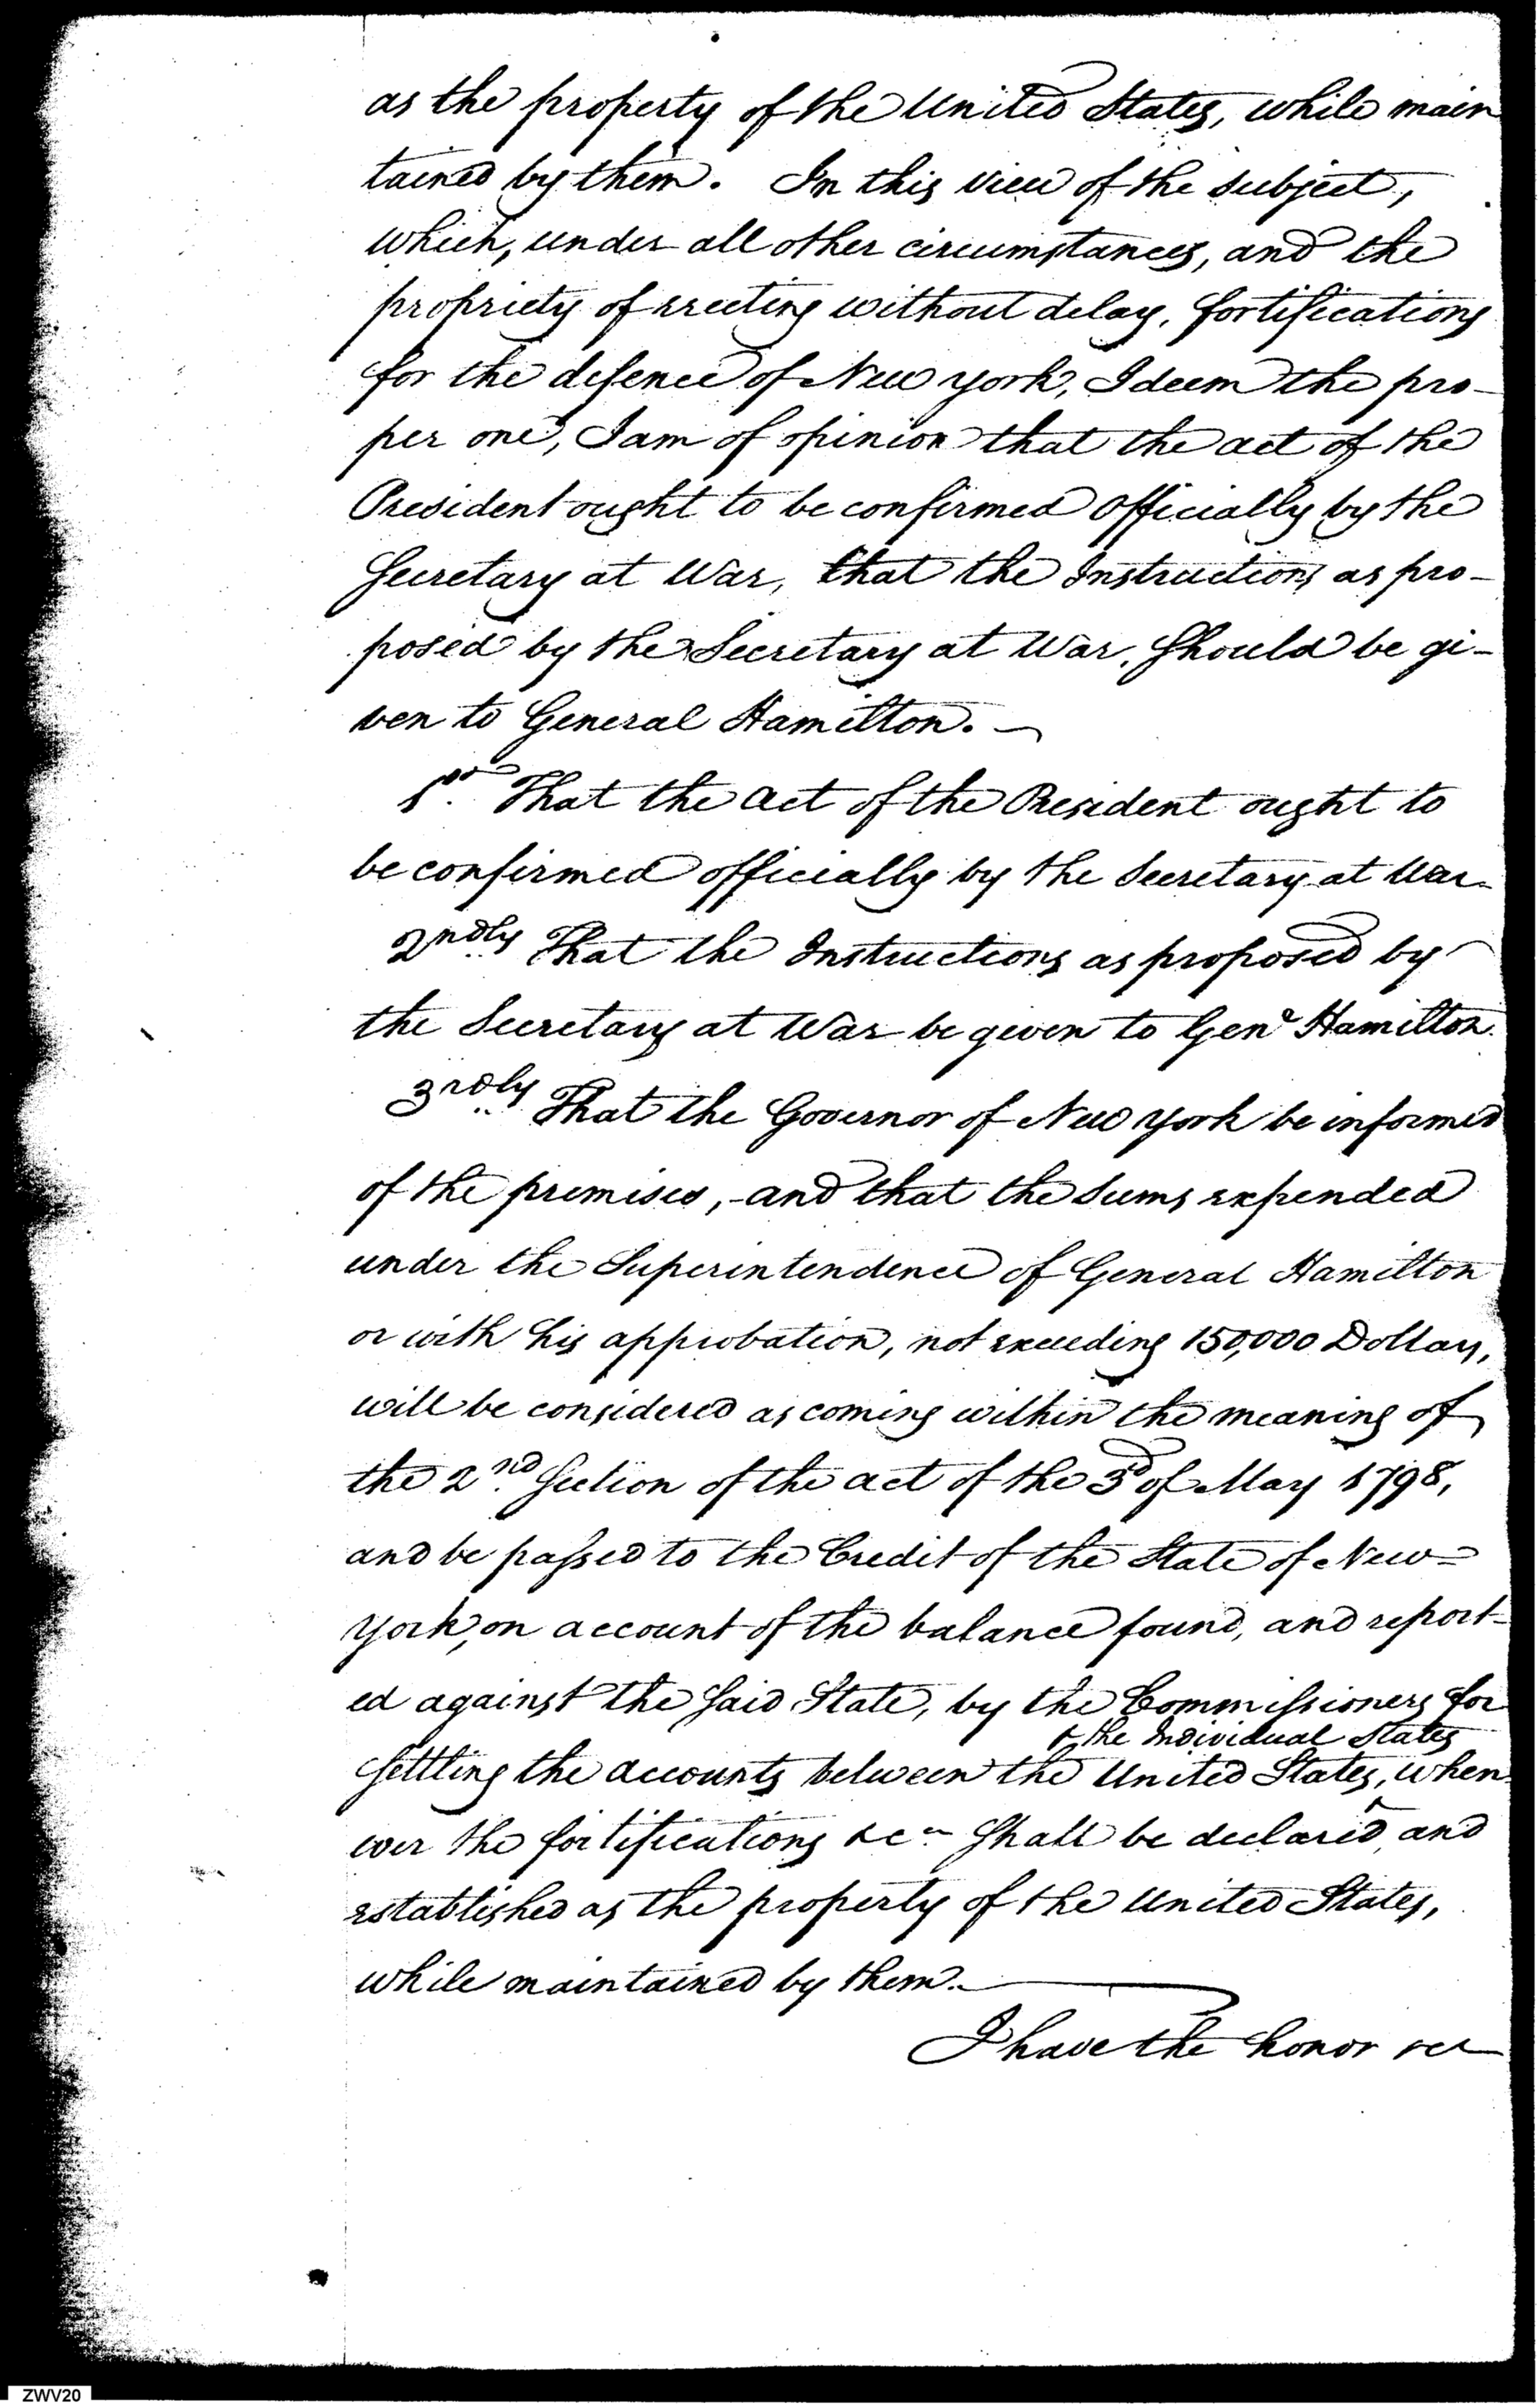 as the property of the United States, while main
tained by them. In this view of the subject,
which, under all other circumstances, and the
propriety of erecting without delay, fortifications
for the defence of New York, I deem the pro-
per one, I am of opinion that the act of the
President ought to be confirmed officially by the
Secretary at War, that the Instructions as pro-
posed by the Secretary at War, should be gi-
ven to General Hamilton. —
1st. That the act of the President ought to
be confirmed officially by the Secretary at War.
2ndly That the Instructions as proposed by
the Secretary at War be given to Genl Hamilton.
3rdly That the Governor of New York be informed
of the premises, and that the sums expended
under the Superintendence of General Hamilton
or with his approbation, not exceeding 150,000 Dollars,
will be considered as coming within the meaning of
the 2nd. Section of the act of the 3d of May 1798,
and be passed to the Credit of the State of New=
York, on account of the balance found, and report-
ed against the said State, by the Commissioners for
& the Individual States
settling the accounts between the United States, when
ever the fortifications &c. shall be declared, and
established as the property of the United States,
while maintained by them. —
I have the honor &c
ZWV20